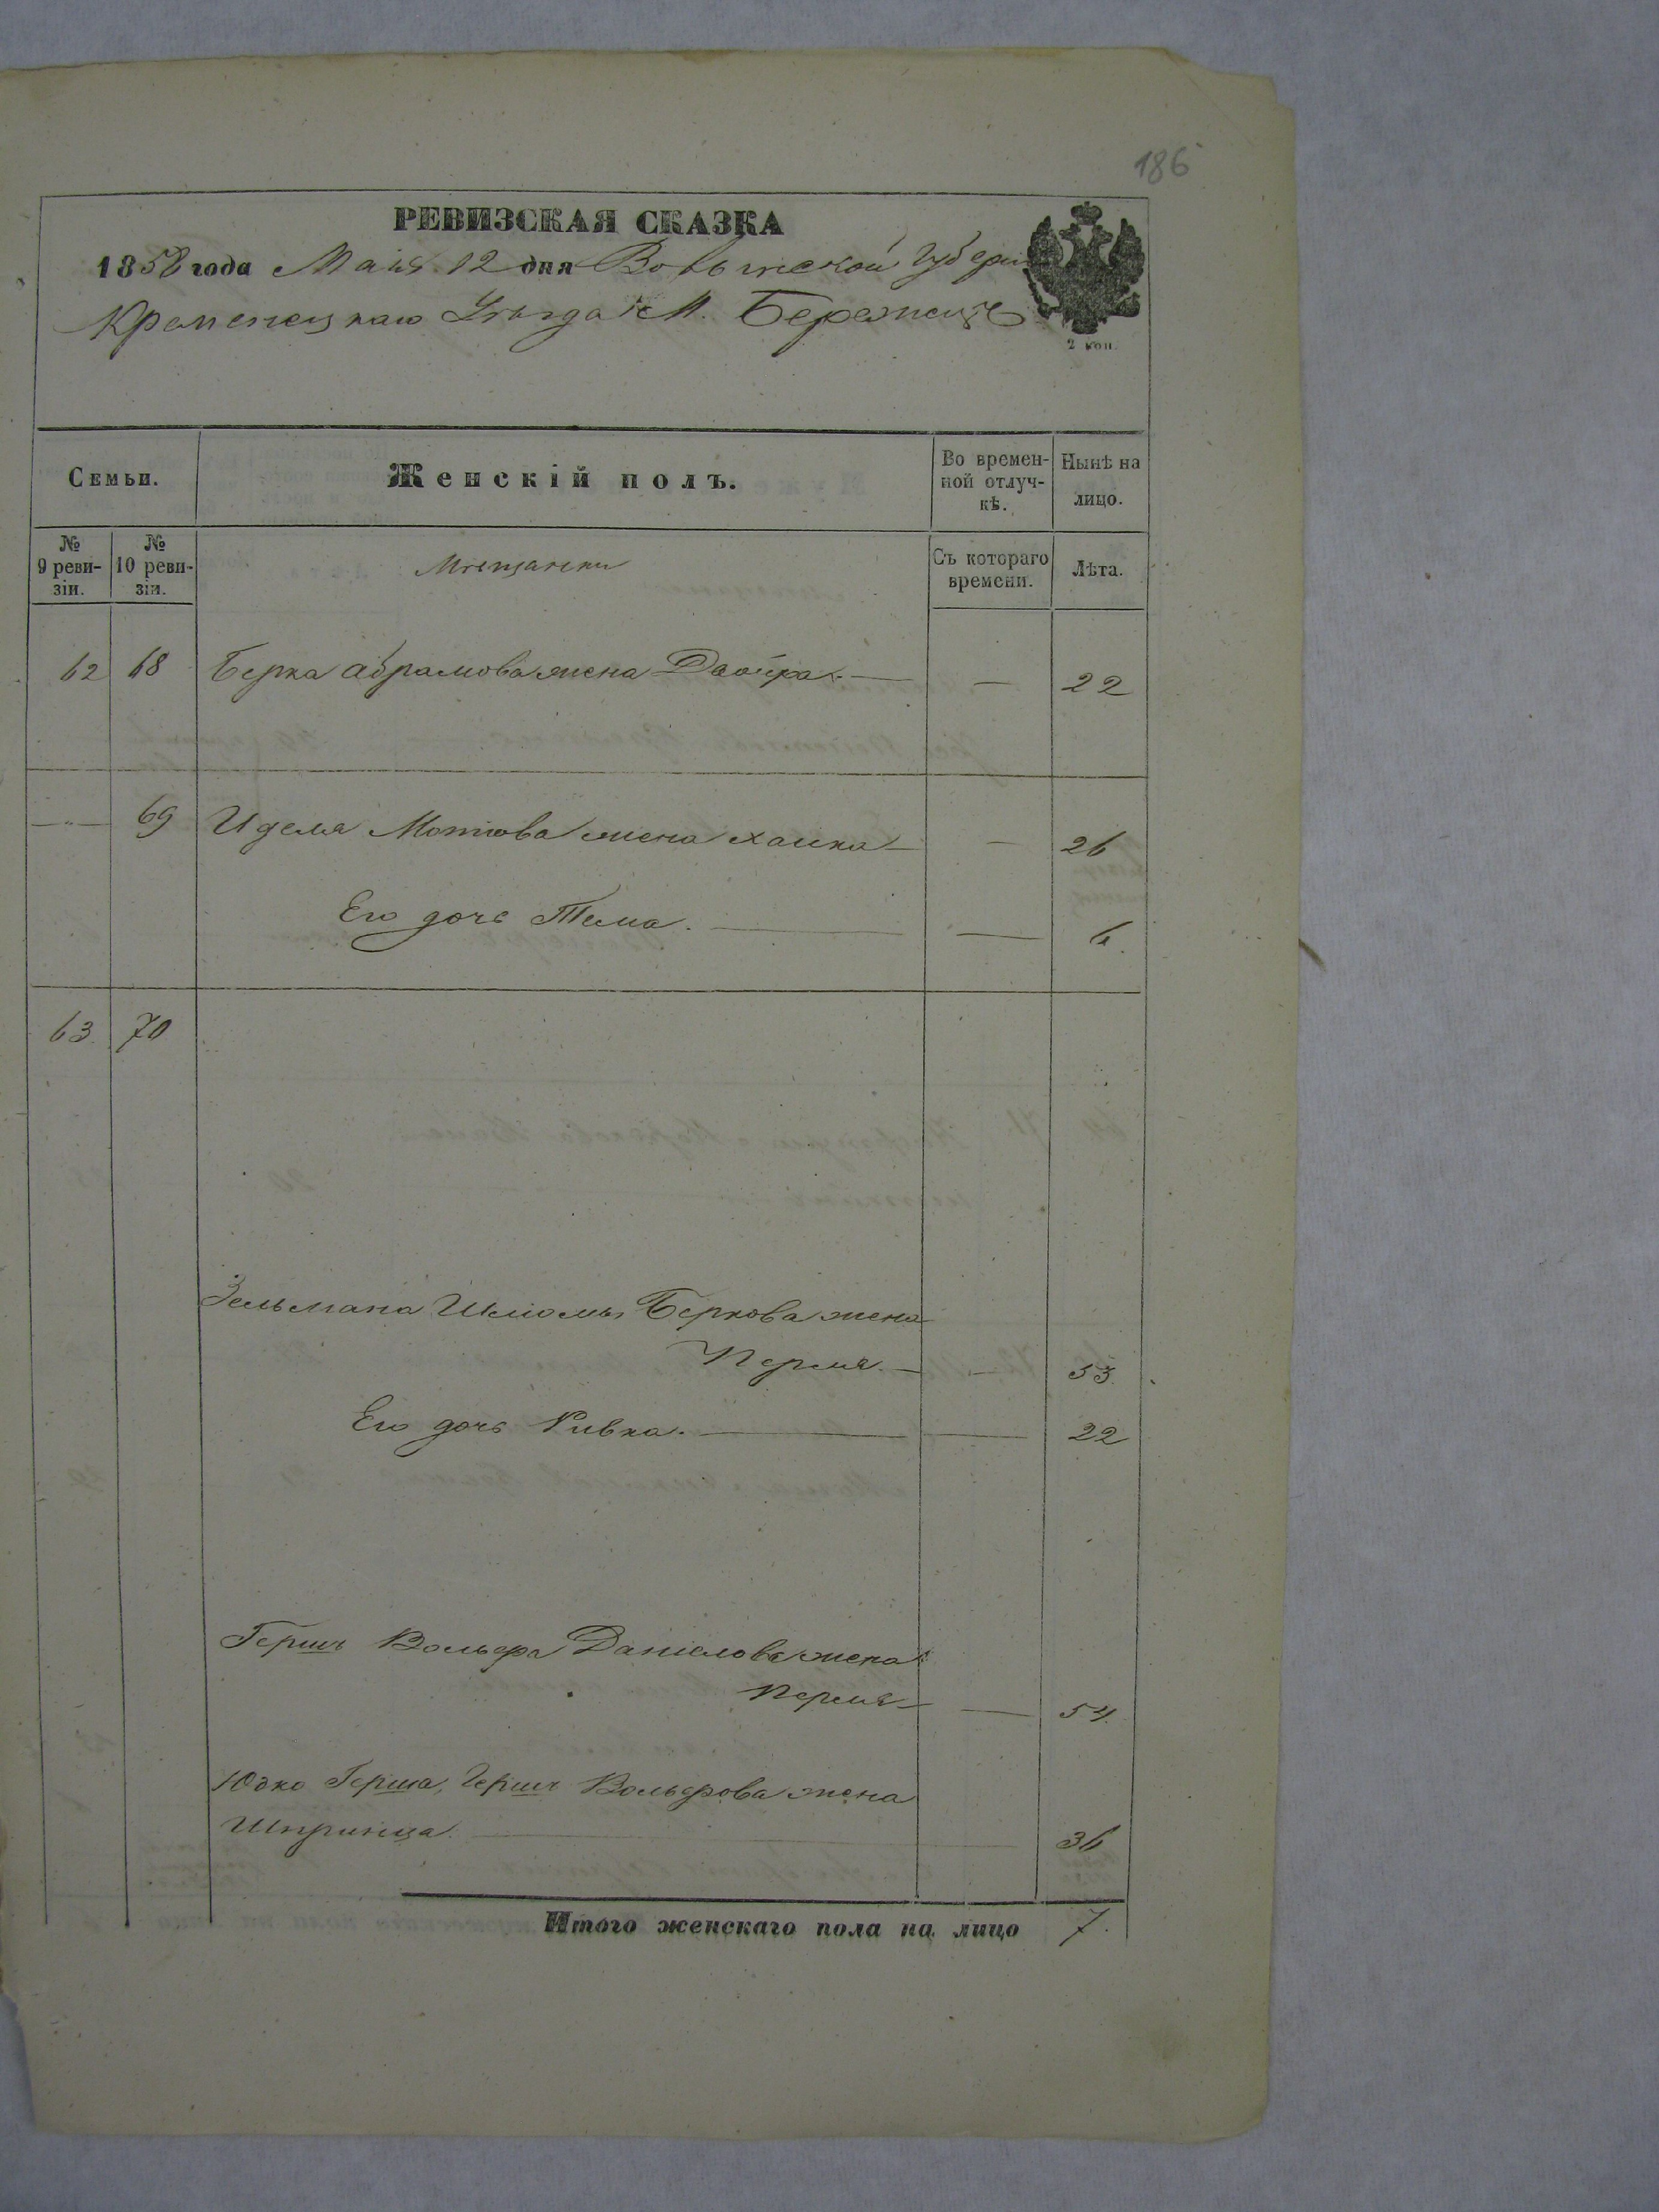 186
РЕВИЗСКАЯ СКАЗКА
1858 года Маія 12 дня Волынской Губерніи
Кременецкаго Уѣзда М. Бережецъ
2 коп.
Семьи.
Женскій полъ.
Во времен-
ной отлуч-
кѣ.
Нынѣ на
лицо.
№
9 реви-
зіи.
№
10 реви-
зіи.
Мѣщанки
Съ котораго
времени.
Лѣта.
62 68 Берка Абрамова жена Двойра. — — 22
— 69 Иделя Мотіова жена Хаика — — 26
Его дочь Тема. — — 6.
63. 70
Зельмана Шліомы Беркова жена
Перля. — — 53.
Его дочь Ривка. — — 22
Гершъ Вольфа Даніелова жена
Перля — — 54.
Юдко Герша, Гершъ Вольфрова жена
Шпринца. — — 36
Итого женскаго пола на лицо 7.